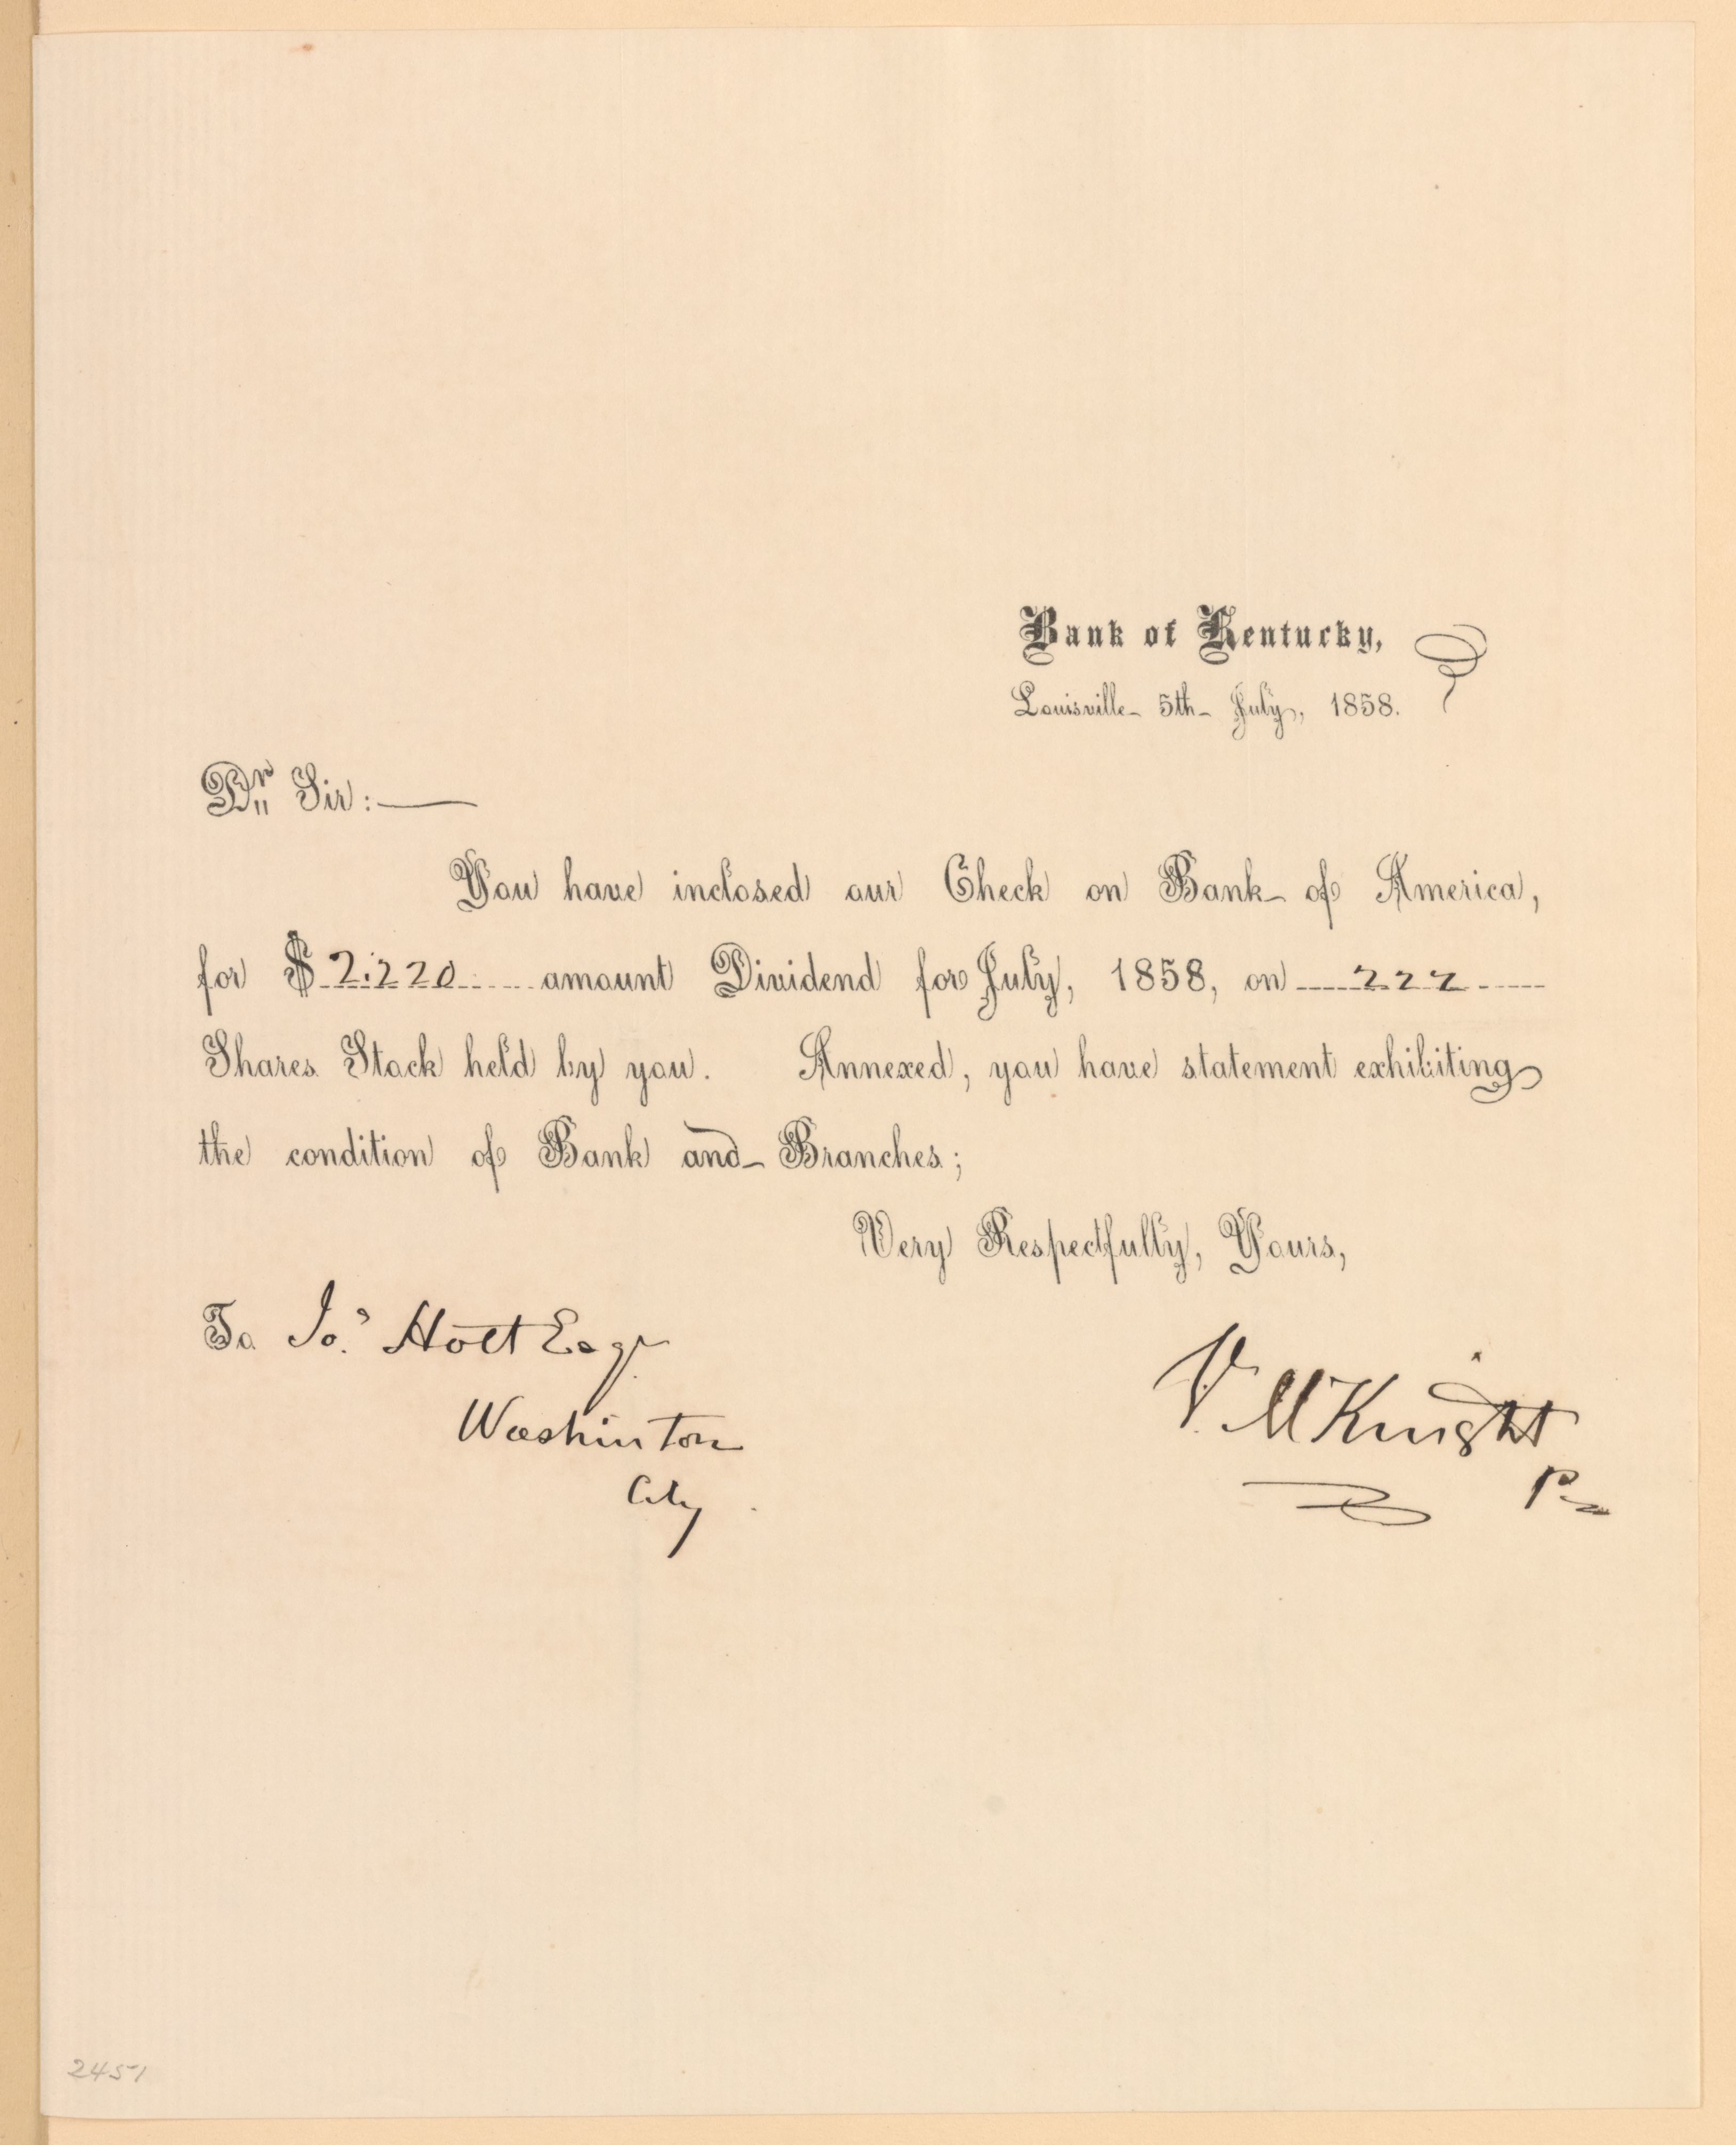 Bank of Kentucky,
Louisville 5th July, 1858.
Dr Sir:
You have inclosed our Check on Bank of America,
for $ 2.220 amount Dividend for July, 1858, on 222
Shares Stock held by you. Annexed, you have statement exhibiting
the condition of Bank and Branches;
Very Respectfully, Yours,
To Jos. Holt Esqr
Washinton
City
V. McKnight
Pr
2451